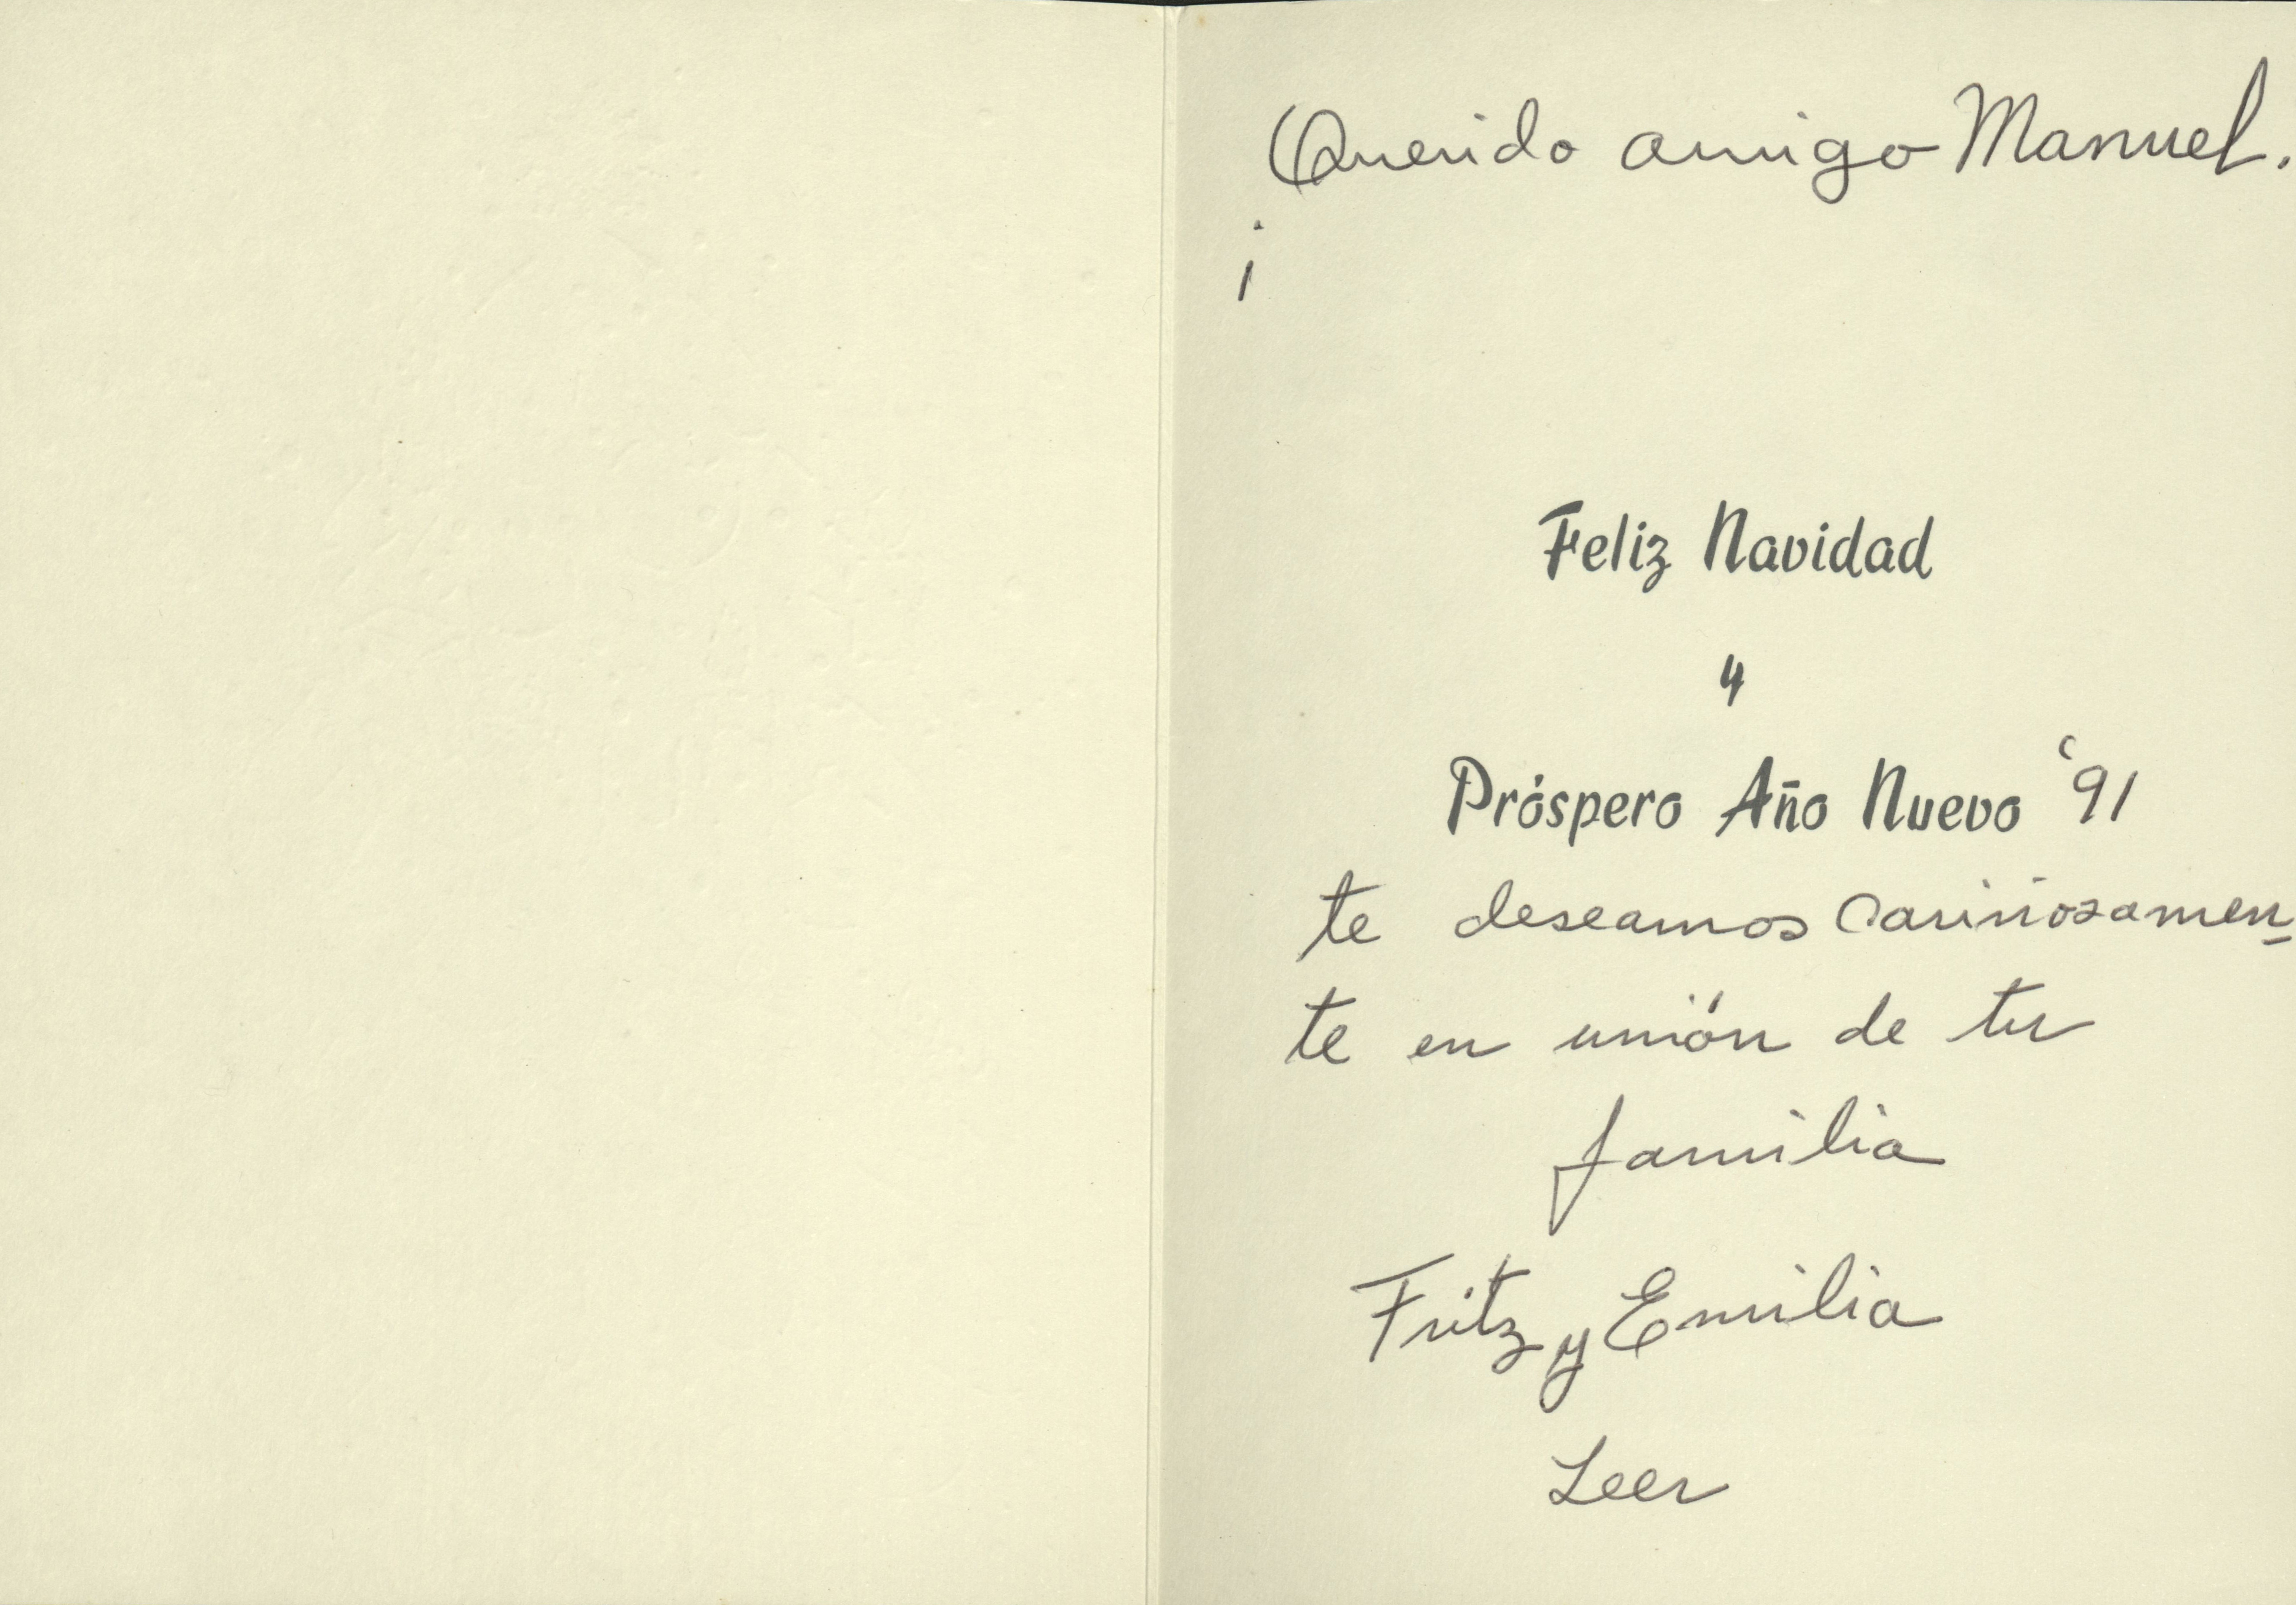 Querido amigo Manuel.
¡
Feliz Navidad
y
Próspero Año Nuevo '91
te deseamos cariñosamen-
te en unión de tu
familia
Fritz y Emilia
Leer